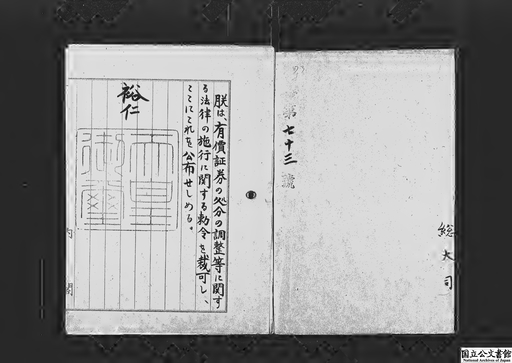 第七十三號
総
大
司
朕は、有價証券の処分の調整等に関す
る法律の施行に関する勅令を裁可し、
ここにこれを公布せしめる。
裕仁
天皇
御璽
内閣
国立公文書館
National Archives of Japan